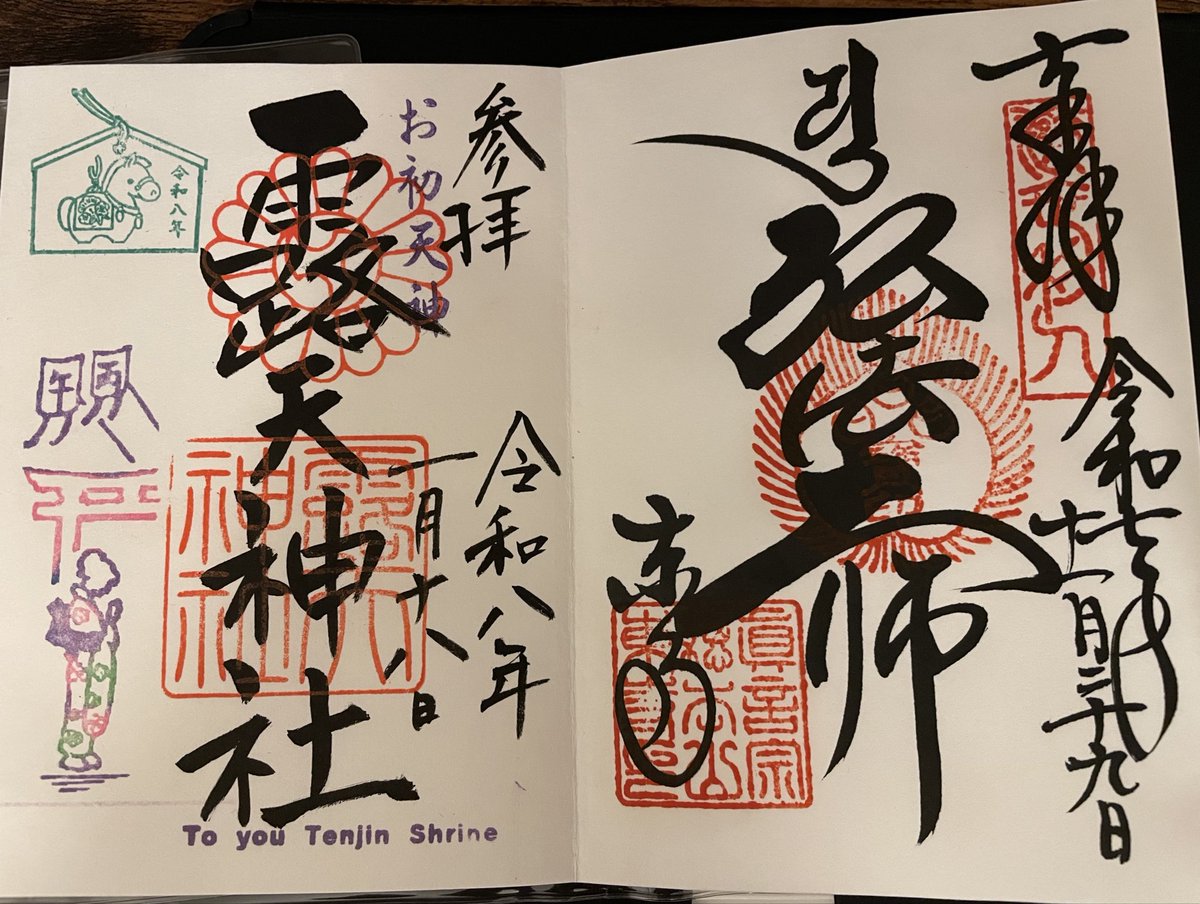 奉拝
令和七年
十一月二十九日
弘法大師
東寺
眞言宗
總本山
参拝
令和八年
一月十八日
お初天神
露天神社
露天
神社
令和八年
To you Tenjin Shrine